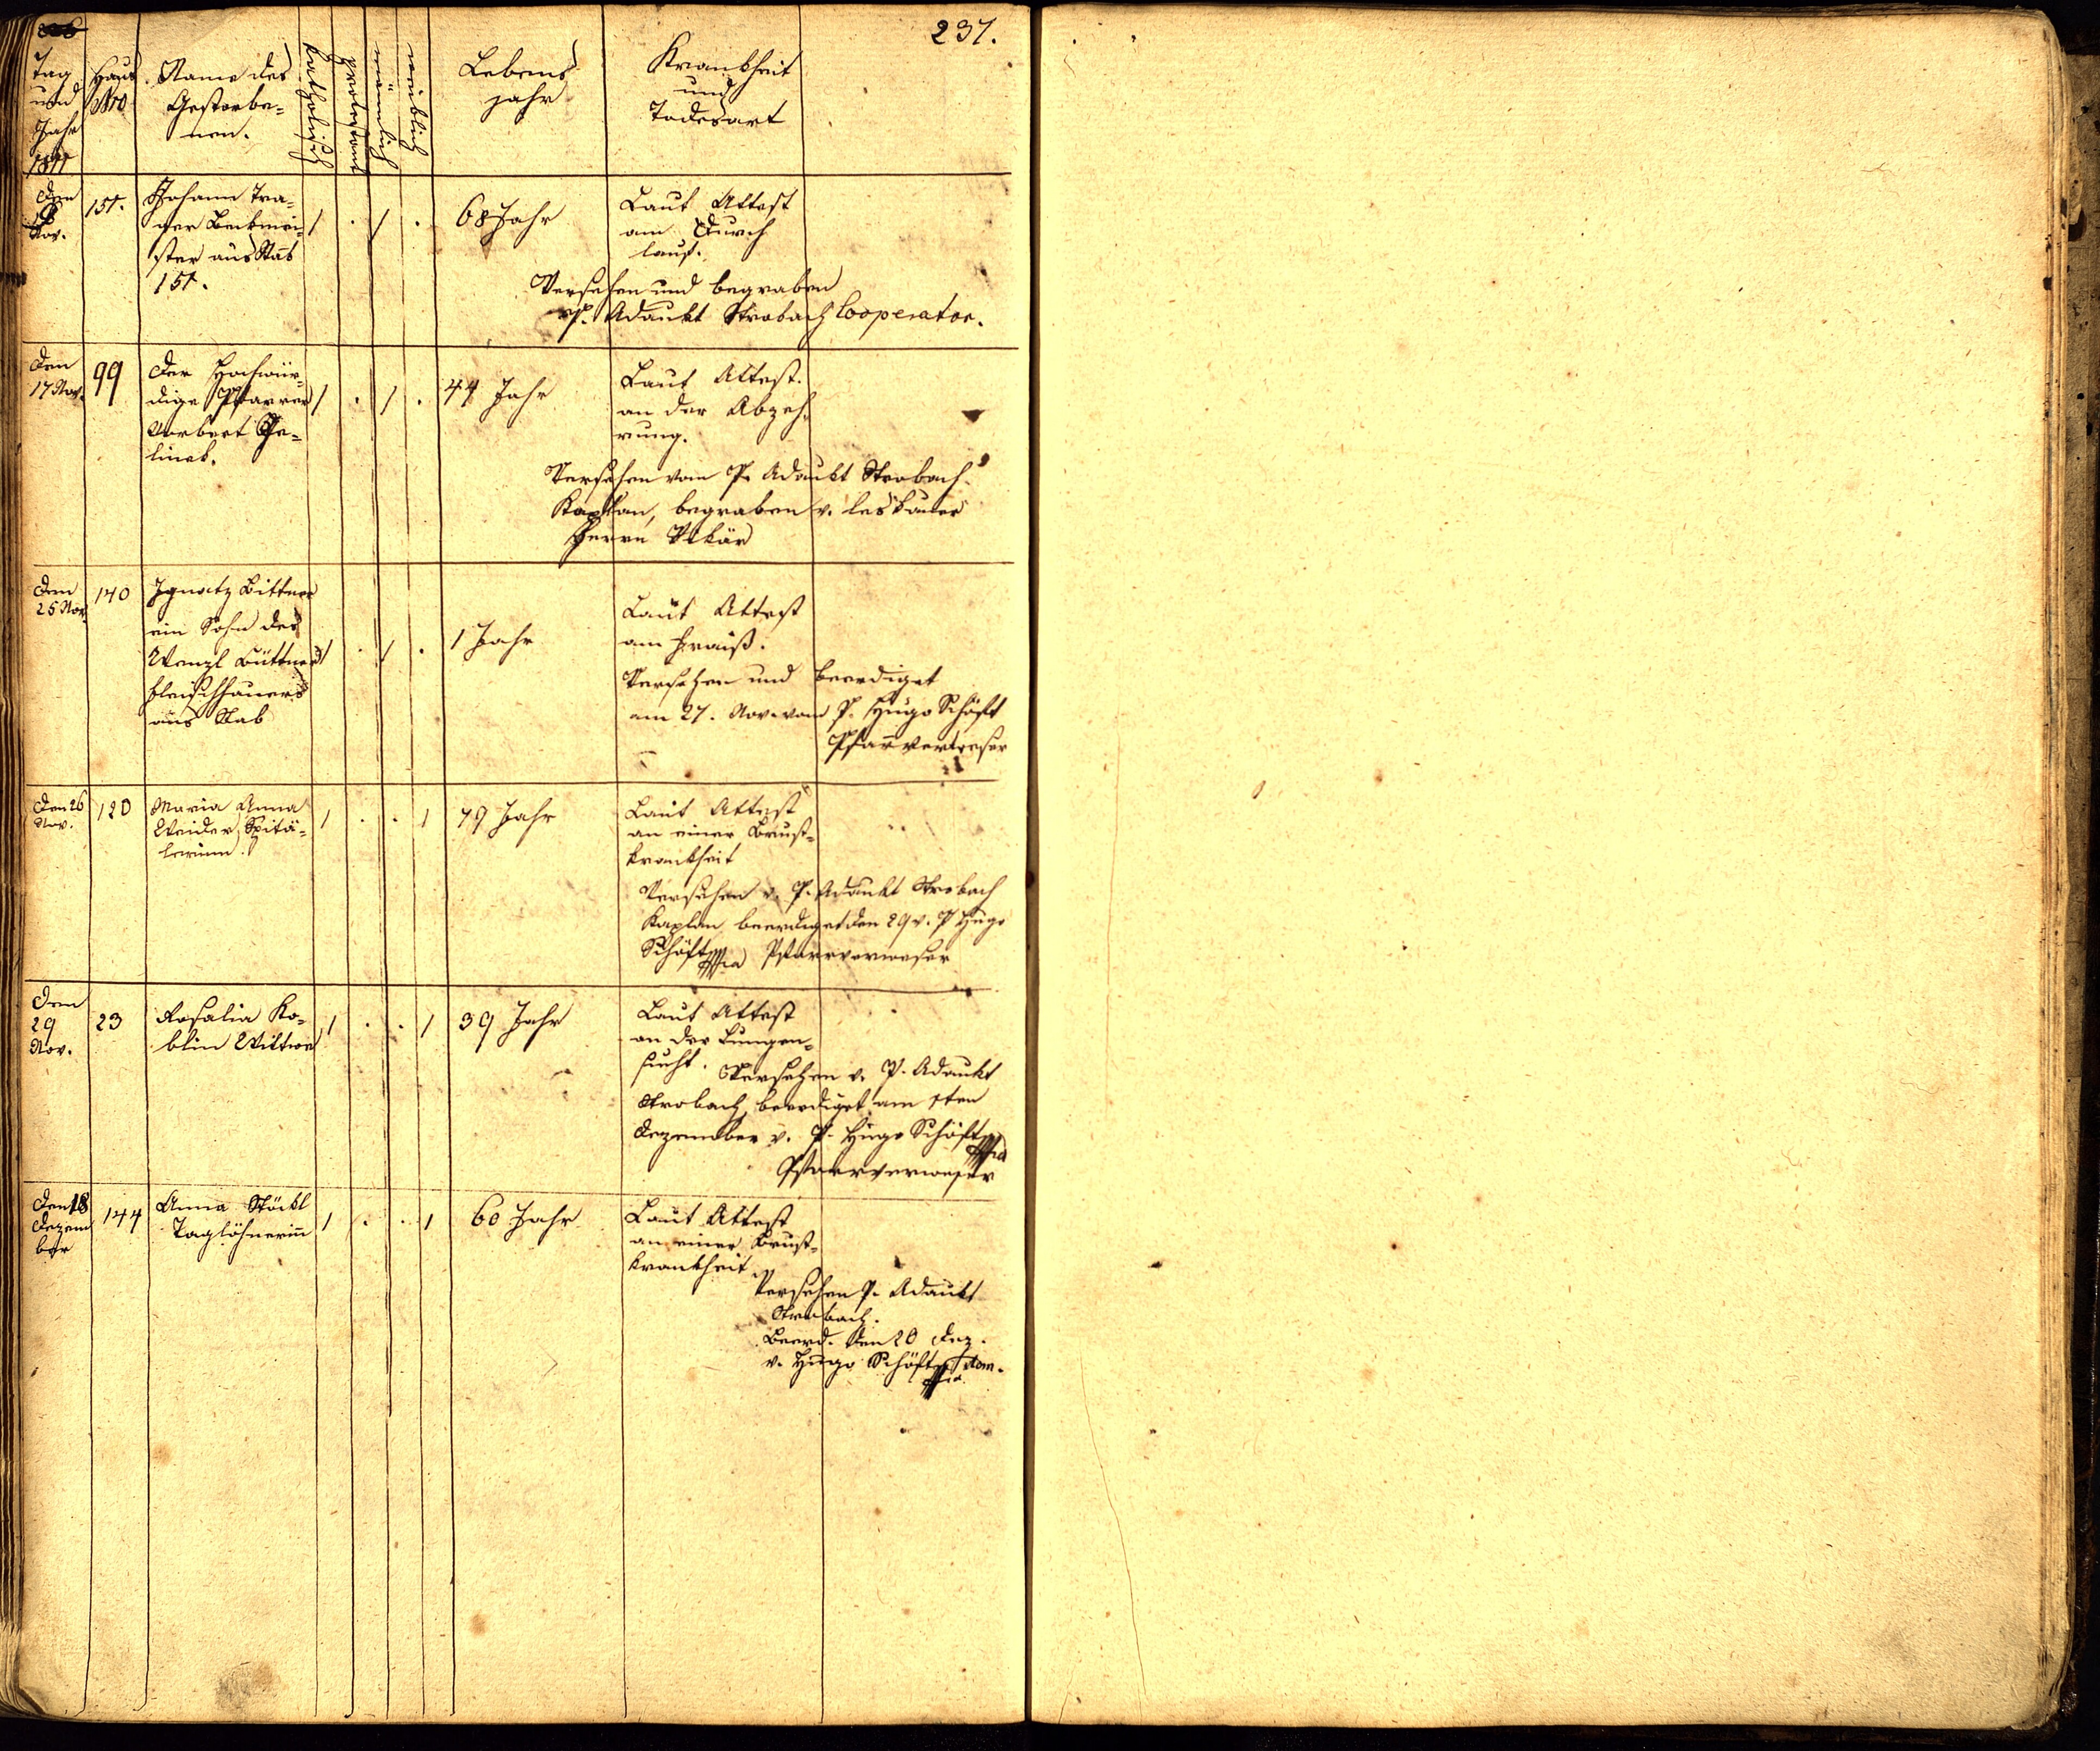 237.
Tag und Jahr
Haus Nro
Name des Gestorbe=
nen.
katholisch
protestant
mänlich
weiblich
Lebens
jahr
Krankheit
und
Todesart
den
Nov.
151.
Johann Tra=
ger Beckmei=
ster aus Stab
151.
1 . 1 .
68 Jahr
Laut Attest
am Durch
lauf.
Versehen und begraben
P. Adaukt Strobach Cooperator.
den
17 Nov.
99
Der Hochwür=
dige Pfarrer
Norbert
1 . 1 .
44 Jahr
Laut Attest.
an der Abzeh=
rung.
Versehen vom P. Adaukt Strobach
Kaplan, begraben v.
Herrn Vikär
den
25 Nov.
140
Ignatz Bittner
ein Sohn des
Wenzl Büttner
fleischhauers
aus Stab
1 . 1 .
1 Jahr
Laut Attest
am Fraiß.
Versehen und beerdiget
am 27. Nov. vom P. Hugo Schöft
Pfarrverweser
den 26
Nov.
120
Maria Anna
Weider Spitä=
lerinn.
1 . . 1
79 Jahr
Laut Attest
an einer Brust=
krankheit
Versehen v. P. Adaukt Strobach
Kaplan beerdiget den 29 v. P Hugo
Schöft Pfarrverweser
den
29
Nov.
23
Rosalia Ko=
blin Wittwe
1 . . 1
39 Jahr
Laut Attest
an der Lungen=
sucht. Versehen v. P. Adaukt
Strobach, beerdiget am 1ten
Dezember v. P. Hugo Schöft
Pfarrverweser
den 18
Dezem
ber
144
Anna Stöckl
Taglöhnerin
1 . . 1
60 Jahr
Laut Attest
an einer Brust=
krankheit
Versehen P. Adaukt
Strobach.
Beerd. den 20 Dez.
v. Hugo Schöft